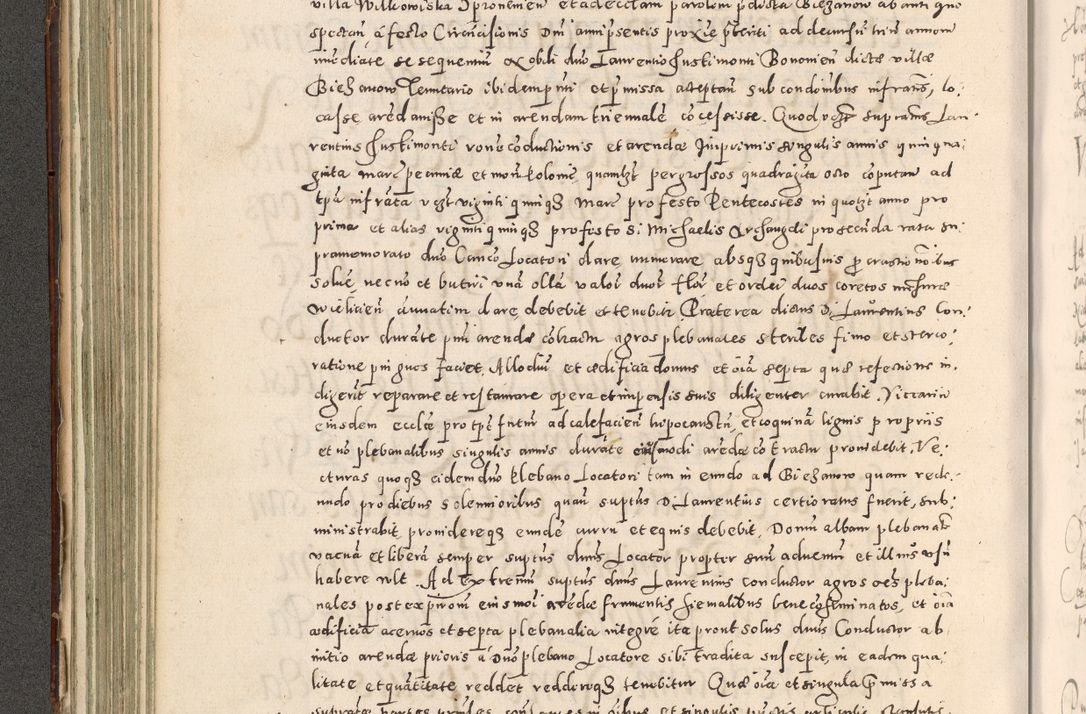 villa Wilkowiska proventuum et ad ecclam parolem pdicta Biezanow ab anti quo
spectan, á festo Circūcisionis Dni anni psentis proxīe pteriti ad decursū triū annorū
imediate se sequentiū nobili duo Laurentio Justimonti Bononien dictæ villæ
Biezanow Tenutario ibidem pnti et pmissa acceptan sub condonibus infrascr, lo-
casse arēdasse et in arendam triennalē cōcessisse. Quod vero suprans Lau-
rentius Justimonti rone coductionis et arendæ Imprimis singulis annis quinqua-
ginta marc pecuniæ et mon Polonic quamlzt per grossos quadragīta octo coputan ad
tpa infrata vczt viginti quinqz Marc pro festo Pentecostes in quolzt anno pro
prima et alias viginti quinqz pro festo S. Michaelis Archangeli pro secunda rata su-
pramemorato duo Canco Locatori dare numerare absqz quibusuis pcrastionibus
solue, necno et butiri vnā ollā valoī duoī floī et ordei duos coretos mensuræ
Wielicien ānuatim dare debebit et tenebit Præterea dictus D. Laurentius Con-
ductor durāte pnti arendæ cōtractu agros plebanales steriles fimo et sterco-
ratione pingues faciet, Allodiū et ædificia domus et oīa septa quæ refectione in-
digerīt reparare et restaurare opera et impensis suis diligenter curabit. Viccario
eiusdem ecclæ pro tpe futuī ad calefacien hypocaustū, et coquinā lignis propriis
et nō plebanalibus singulis annis durāte eiusmodi arēdæ cōtractu prouidebit, Ve-
cturas quoqz eidem duo Plebano Locatori tam in eundo ad Biezanow quam rede-
undo pro diebus solennioribus quan suptus D. Laurentius certioratus fuerit, sub-
ministrabit, prouidereqz eunde curru et equis debebit, Domū albam plebanalē
vacuā et liberā semper suptus dnus Locator propter suū aduentū et illius vsū
habere vlt. Ad Extremū suptus dnus Laurentius conductor agros oes pleba-
nales post expironē eiusmoi arēdæ frumentis hiemalibus bene cōseminatos, et oīa
ædificia acervos et septa plebanalia integrē ita prout solus dnus Conductor ab
initio arendæ prioris á Dno plebano Locatore sibi tradita suscepit, in eadem qua-
litate et quātitate reddet reddereqz tenebitur Quæ oīa et singula pmissa